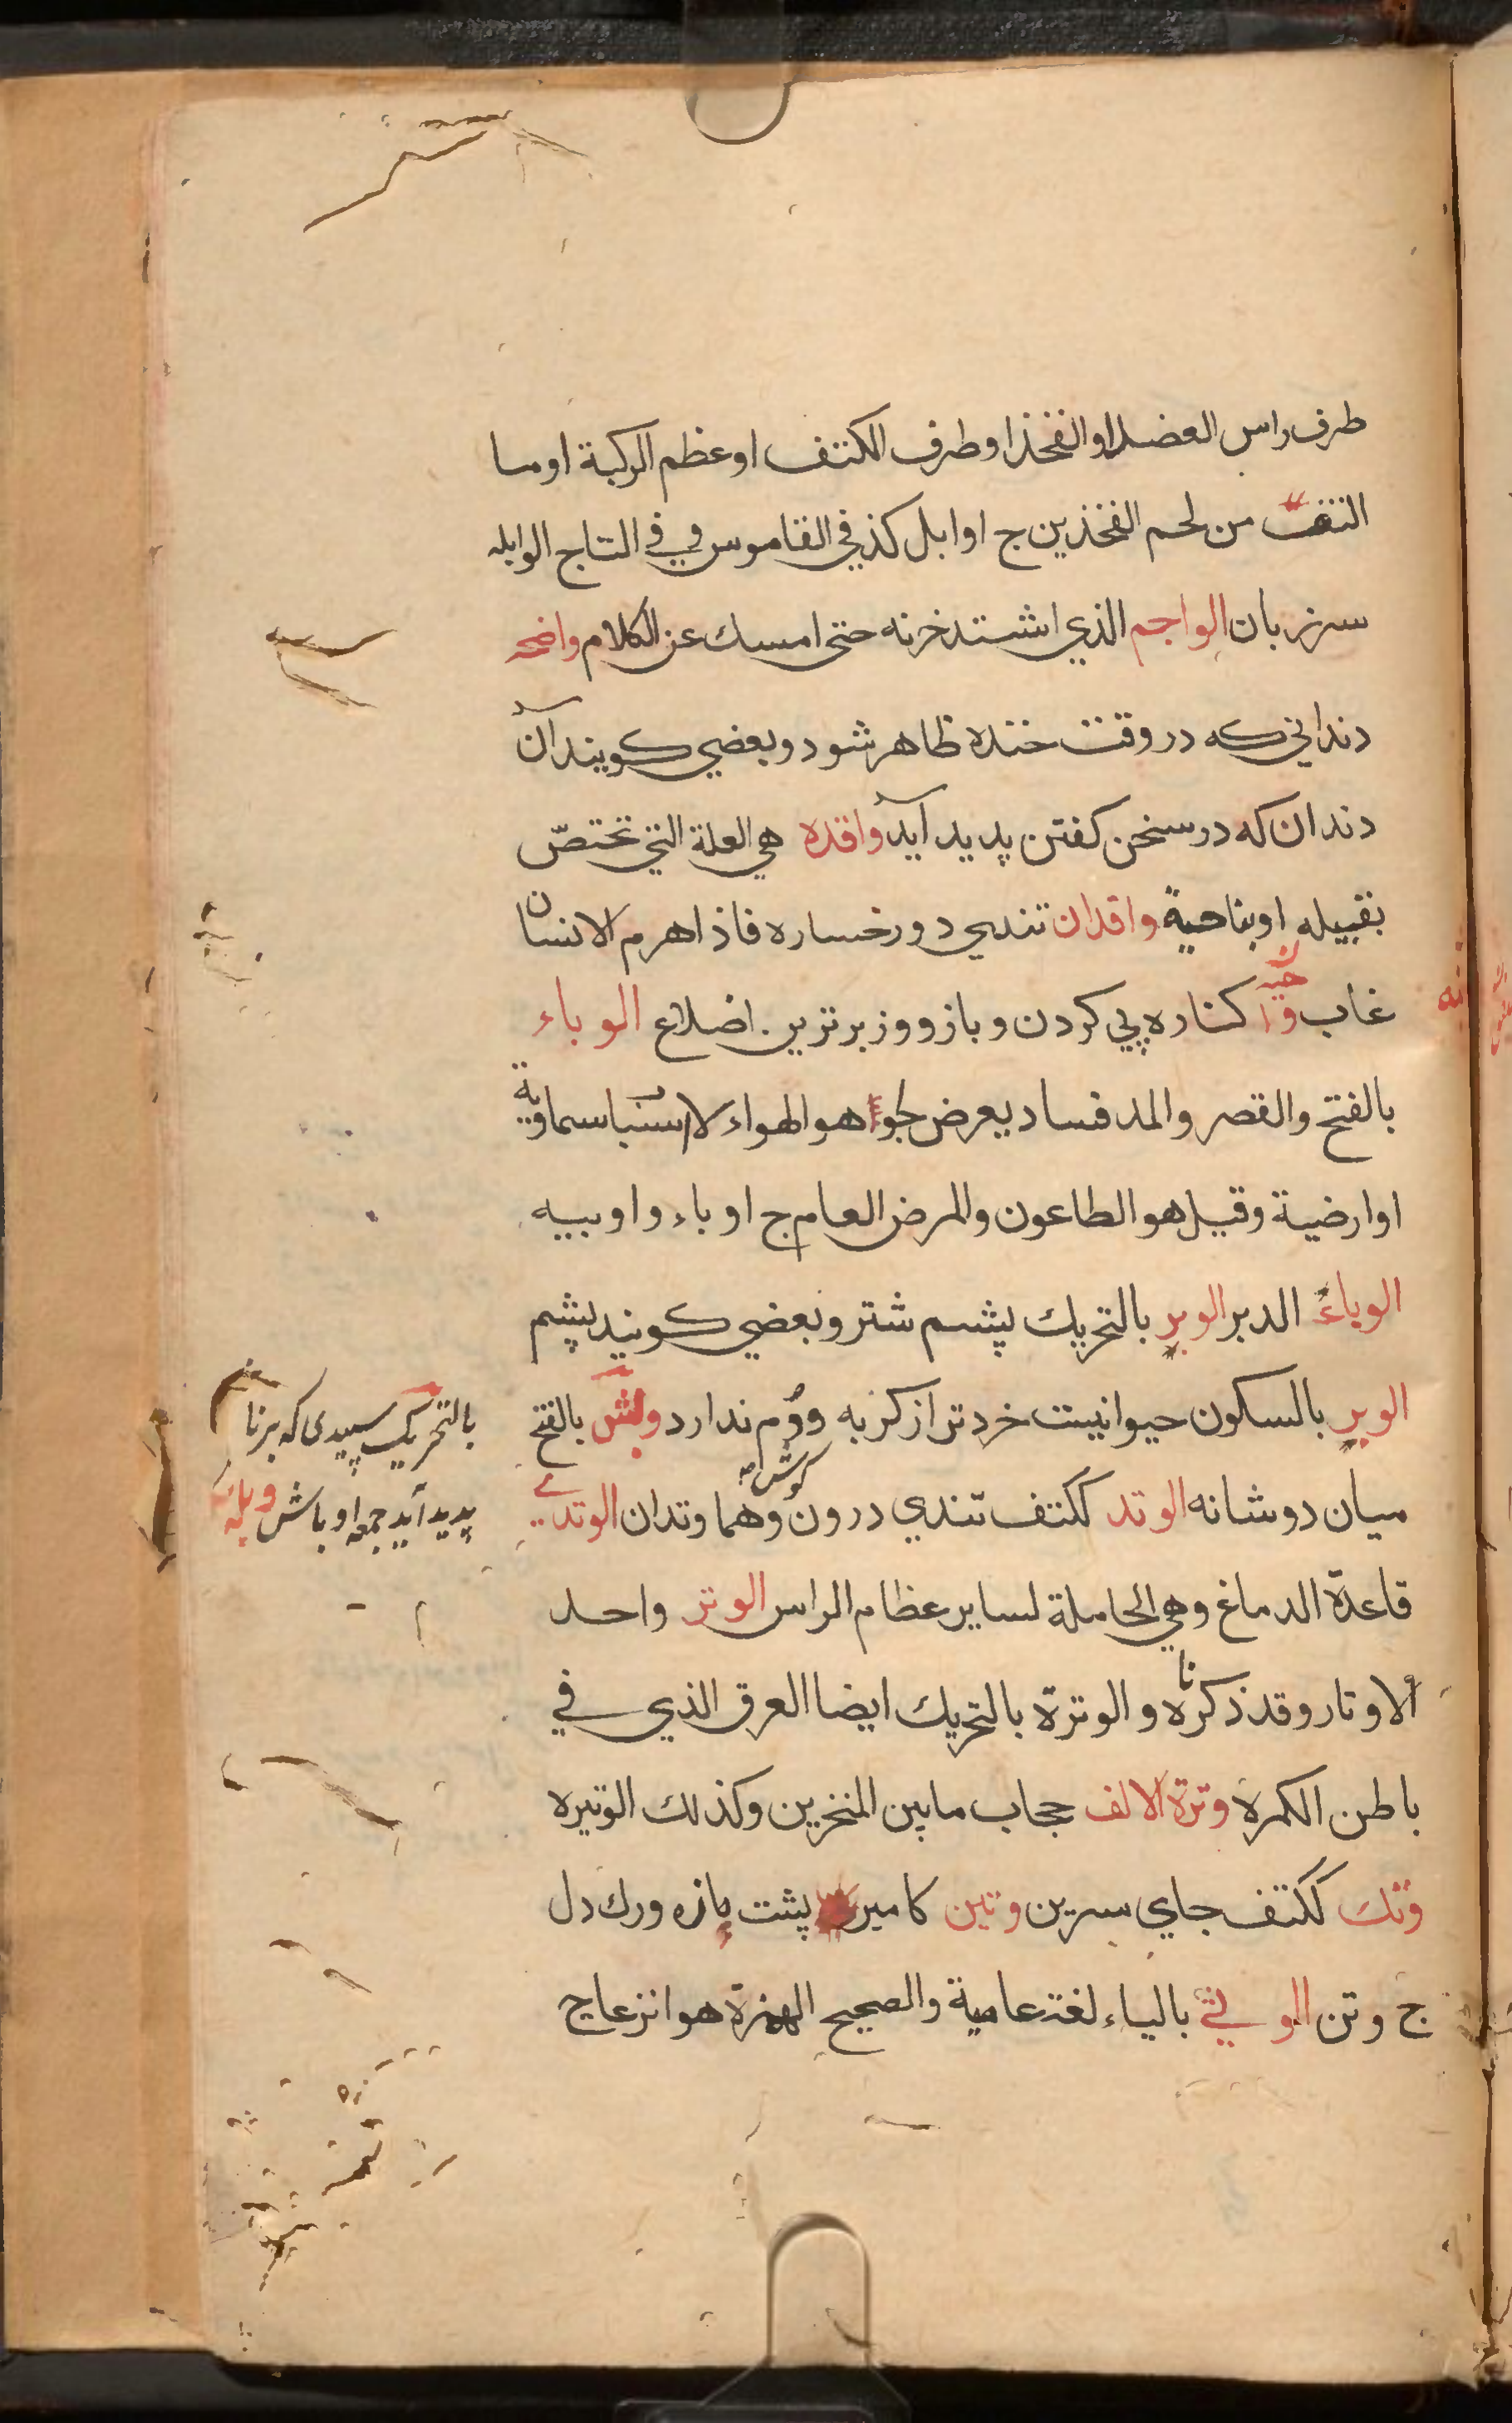 طرف راس العضد او الفخذ او طرف الكتف او عظم الركبة او ما
التف من لحم الفخذين ج اوابل كذ في القاموس و في التاج الوابله
سر زبان الواجم الذي اشتد خزنه حتى امسك عن الكلام واضحه
دنداني كه در وقت خنده ظاهر شود و بعضي كويند آن
دندان كه در سخن كفتن پديد آيد وافده هي العلة التي تختصّ
بقبيله او بناحية وافدان تندي دو رخساره فاذا هرم الانسان
غاب كناره پي كردن و بازو و زبرترين اضلاع الوباء
بالفتح والقصر والمد فساد يعرض لجوء هو الهواء لاسباب سماوية
او ارضية وقيل هو الطاعون والمرض العام ج اوباء و اوبيه
الوباعه الدبر الوبر بالتحريك پشم شتر و بعضي كويند پشم
الوبر بالسكون حيوانيست خردتر از كربه و دم ندارد وبش بالفتح
بالتحريك سپيدى كه برنا
پديد آيد جمعه اوباش
ميان دو شانه الوتد ككتف تندي درون كوش وهما وتدان الوتدي
قاعدة الدماغ وهي الحاملة لساير عظام الراس الوتر واحد
الاوتار وقد ذكرناه و الوترة بالتحريك ايضا العرق الذي في
باطن الكمرة وترة الانف حجاب ما بين المنخرين وكذلك الوتيره
وتك ككتف جاي سرين وتين كامير پشت مازه ورك دل
ج وتن الوثي بالياء لغة عامية والصحيح الهمزة هو انزعاج